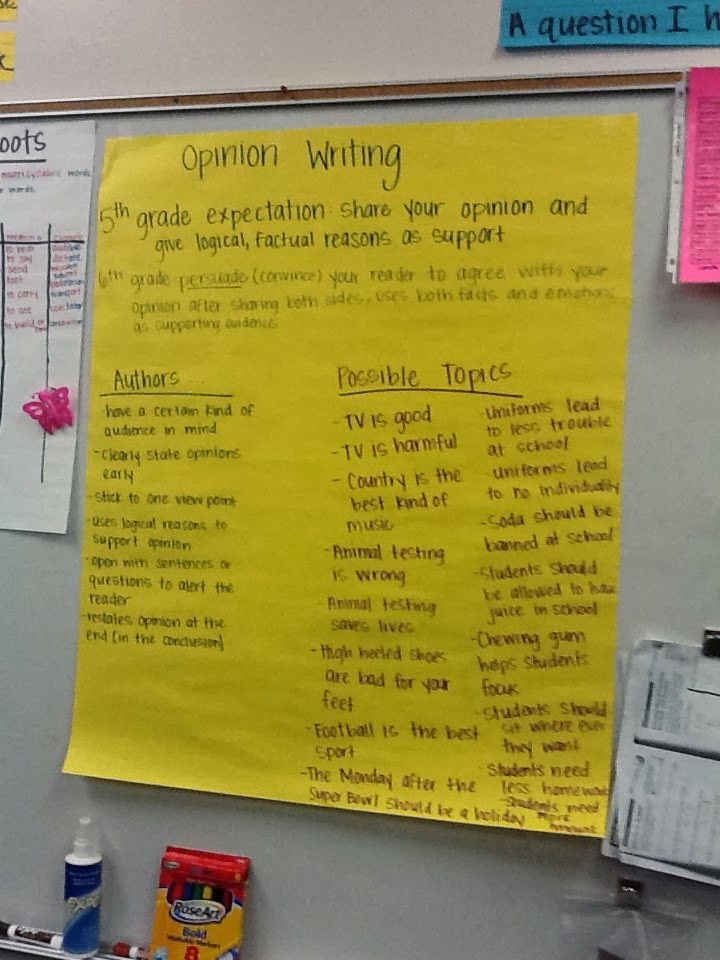 A question I h
oots
words
words.
Opinion Writing
5th grade expectation: share your opinion and
give logical, factual reasons as support
6th grade persuade (convince) your reader to agree with your
opinion after sharing both sides, uses both facts and emotions
as supporting evidence
Authors
-have a certain kind of
audience in mind
-Clearly state opinions
early
-stick to one view point
-uses logical reasons to
support opinion
-open with sentences or
questions to alert the
reader
-restates opinion at the
end (in the conclusion)
Possible Topics
-TV is good
-TV is harmful
-Country is the
best kind of
music
-Animal testing
is wrong
-Animal testing
saves lives
-High heeled shoes
are bad for your
feet
-Football is the best
sport
-The Monday after the
Super Bowl should be a holiday
-Uniforms lead
to less trouble
at school
-Uniforms lead
to no individuality
-Soda should be
banned at school
-Students should
be allowed to have
juice in school
-Chewing gum
helps students
focus
-Students should
sit where ever
they want
-Students need
less homework
-Students need
more
homework
to say
to carry
to see
to build
EXPO
RoseArt
Bold
Washable Markers
8